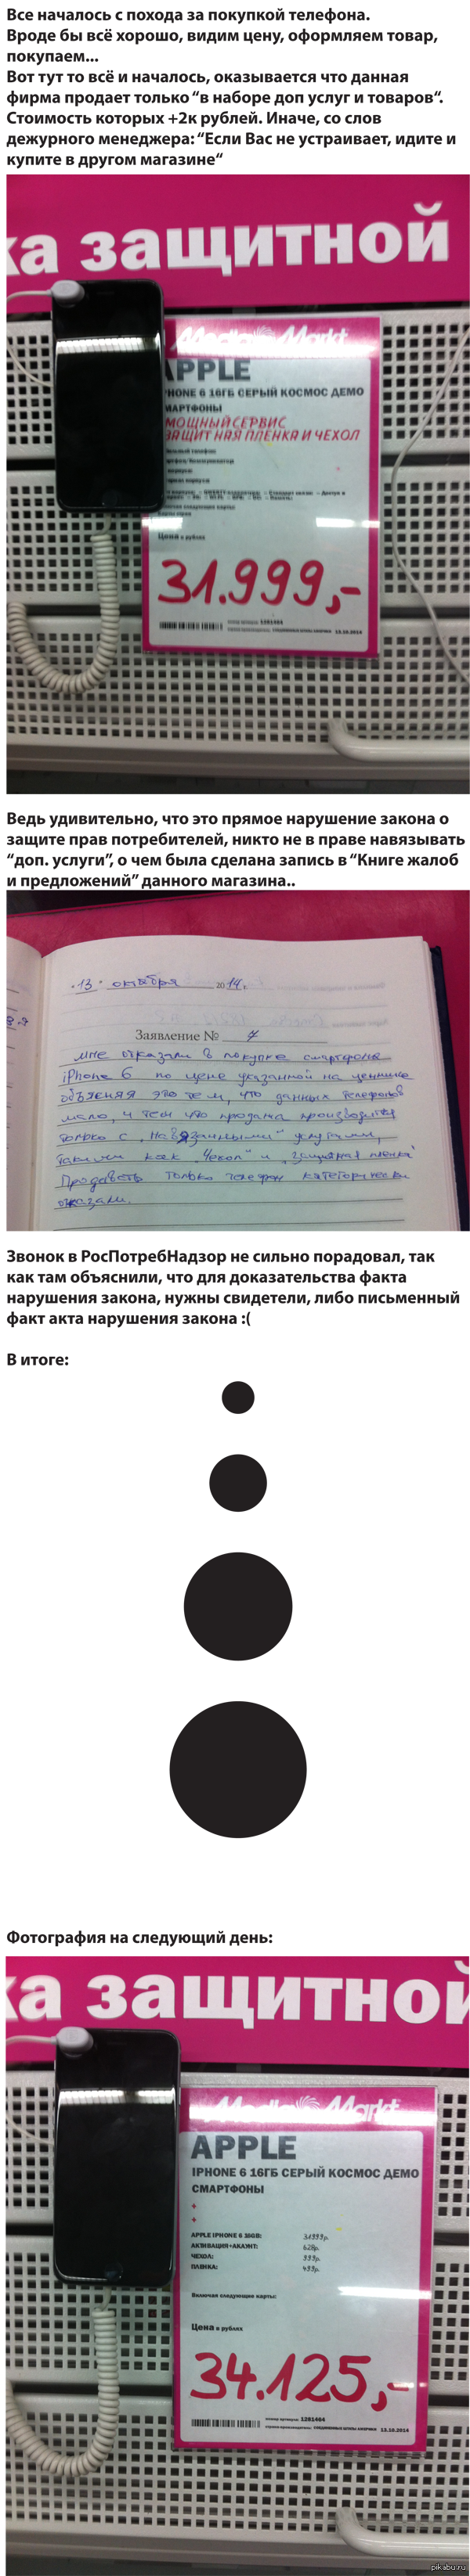 Все началось с похода за покупкой телефона.
Вроде бы всё хорошо, видим цену, оформляем товар,
покупаем...
Вот тут то всё и началось, оказывается что данная
фирма продает только “в наборе доп услуг и товаров“.
Стоимость которых +2к рублей. Иначе, со слов
дежурного менеджера: “Если Вас не устраивает, идите и
купите в другом магазине“
ка защитной
Media Markt
APPLE
PHONE 6 16ГБ СЕРЫЙ КОСМОС ДЕМО
МАРТФОНЫ
МОЩНЫЙ СЕРВИС
ЗАЩИТНАЯ ПЛЕНКА И ЧЕХОЛ
Цена в рублях
31.999,-
1281464
13.10.2014
Ведь удивительно, что это прямое нарушение закона о
защите прав потребителей, никто не в праве навязывать
“доп. услуги”, о чем была сделана запись в “Книге жалоб
и предложений” данного магазина..
"13" октября 2014 г.
Заявление № 7
Мне отказали в покупке смартфона
iPhone 6 по цене указанной на ценнике
объясняя это тем, что данных телефонов
мало, и тем что продажа производится
только с "навязанными" услугами,
такими как "Чехол" и "защитная пленка"
Продавать только телефон категорически
отказали.
Звонок в РосПотребНадзор не сильно порадовал, так
как там объяснили, что для доказательства факта
нарушения закона, нужны свидетели, либо письменный
факт акта нарушения закона :(
В итоге:
Фотография на следующий день:
ка защитной
Media Markt
APPLE
IPHONE 6 16ГБ СЕРЫЙ КОСМОС ДЕМО
СМАРТФОНЫ
+
+
APPLE IPHONE 6 16GB: 31999р.
АКТИВАЦИЯ+АКАУНТ: 628р.
ЧЕХОЛ: 999р.
ПЛЕНКА: 499р.
Включая следующие карты:
Цена в рублях
34.125,-
номер артикула: 1281464
страна-производитель: СОЕДИНЕННЫЕ ШТАТЫ АМЕРИКИ 13.10.2014
pikabu.ru